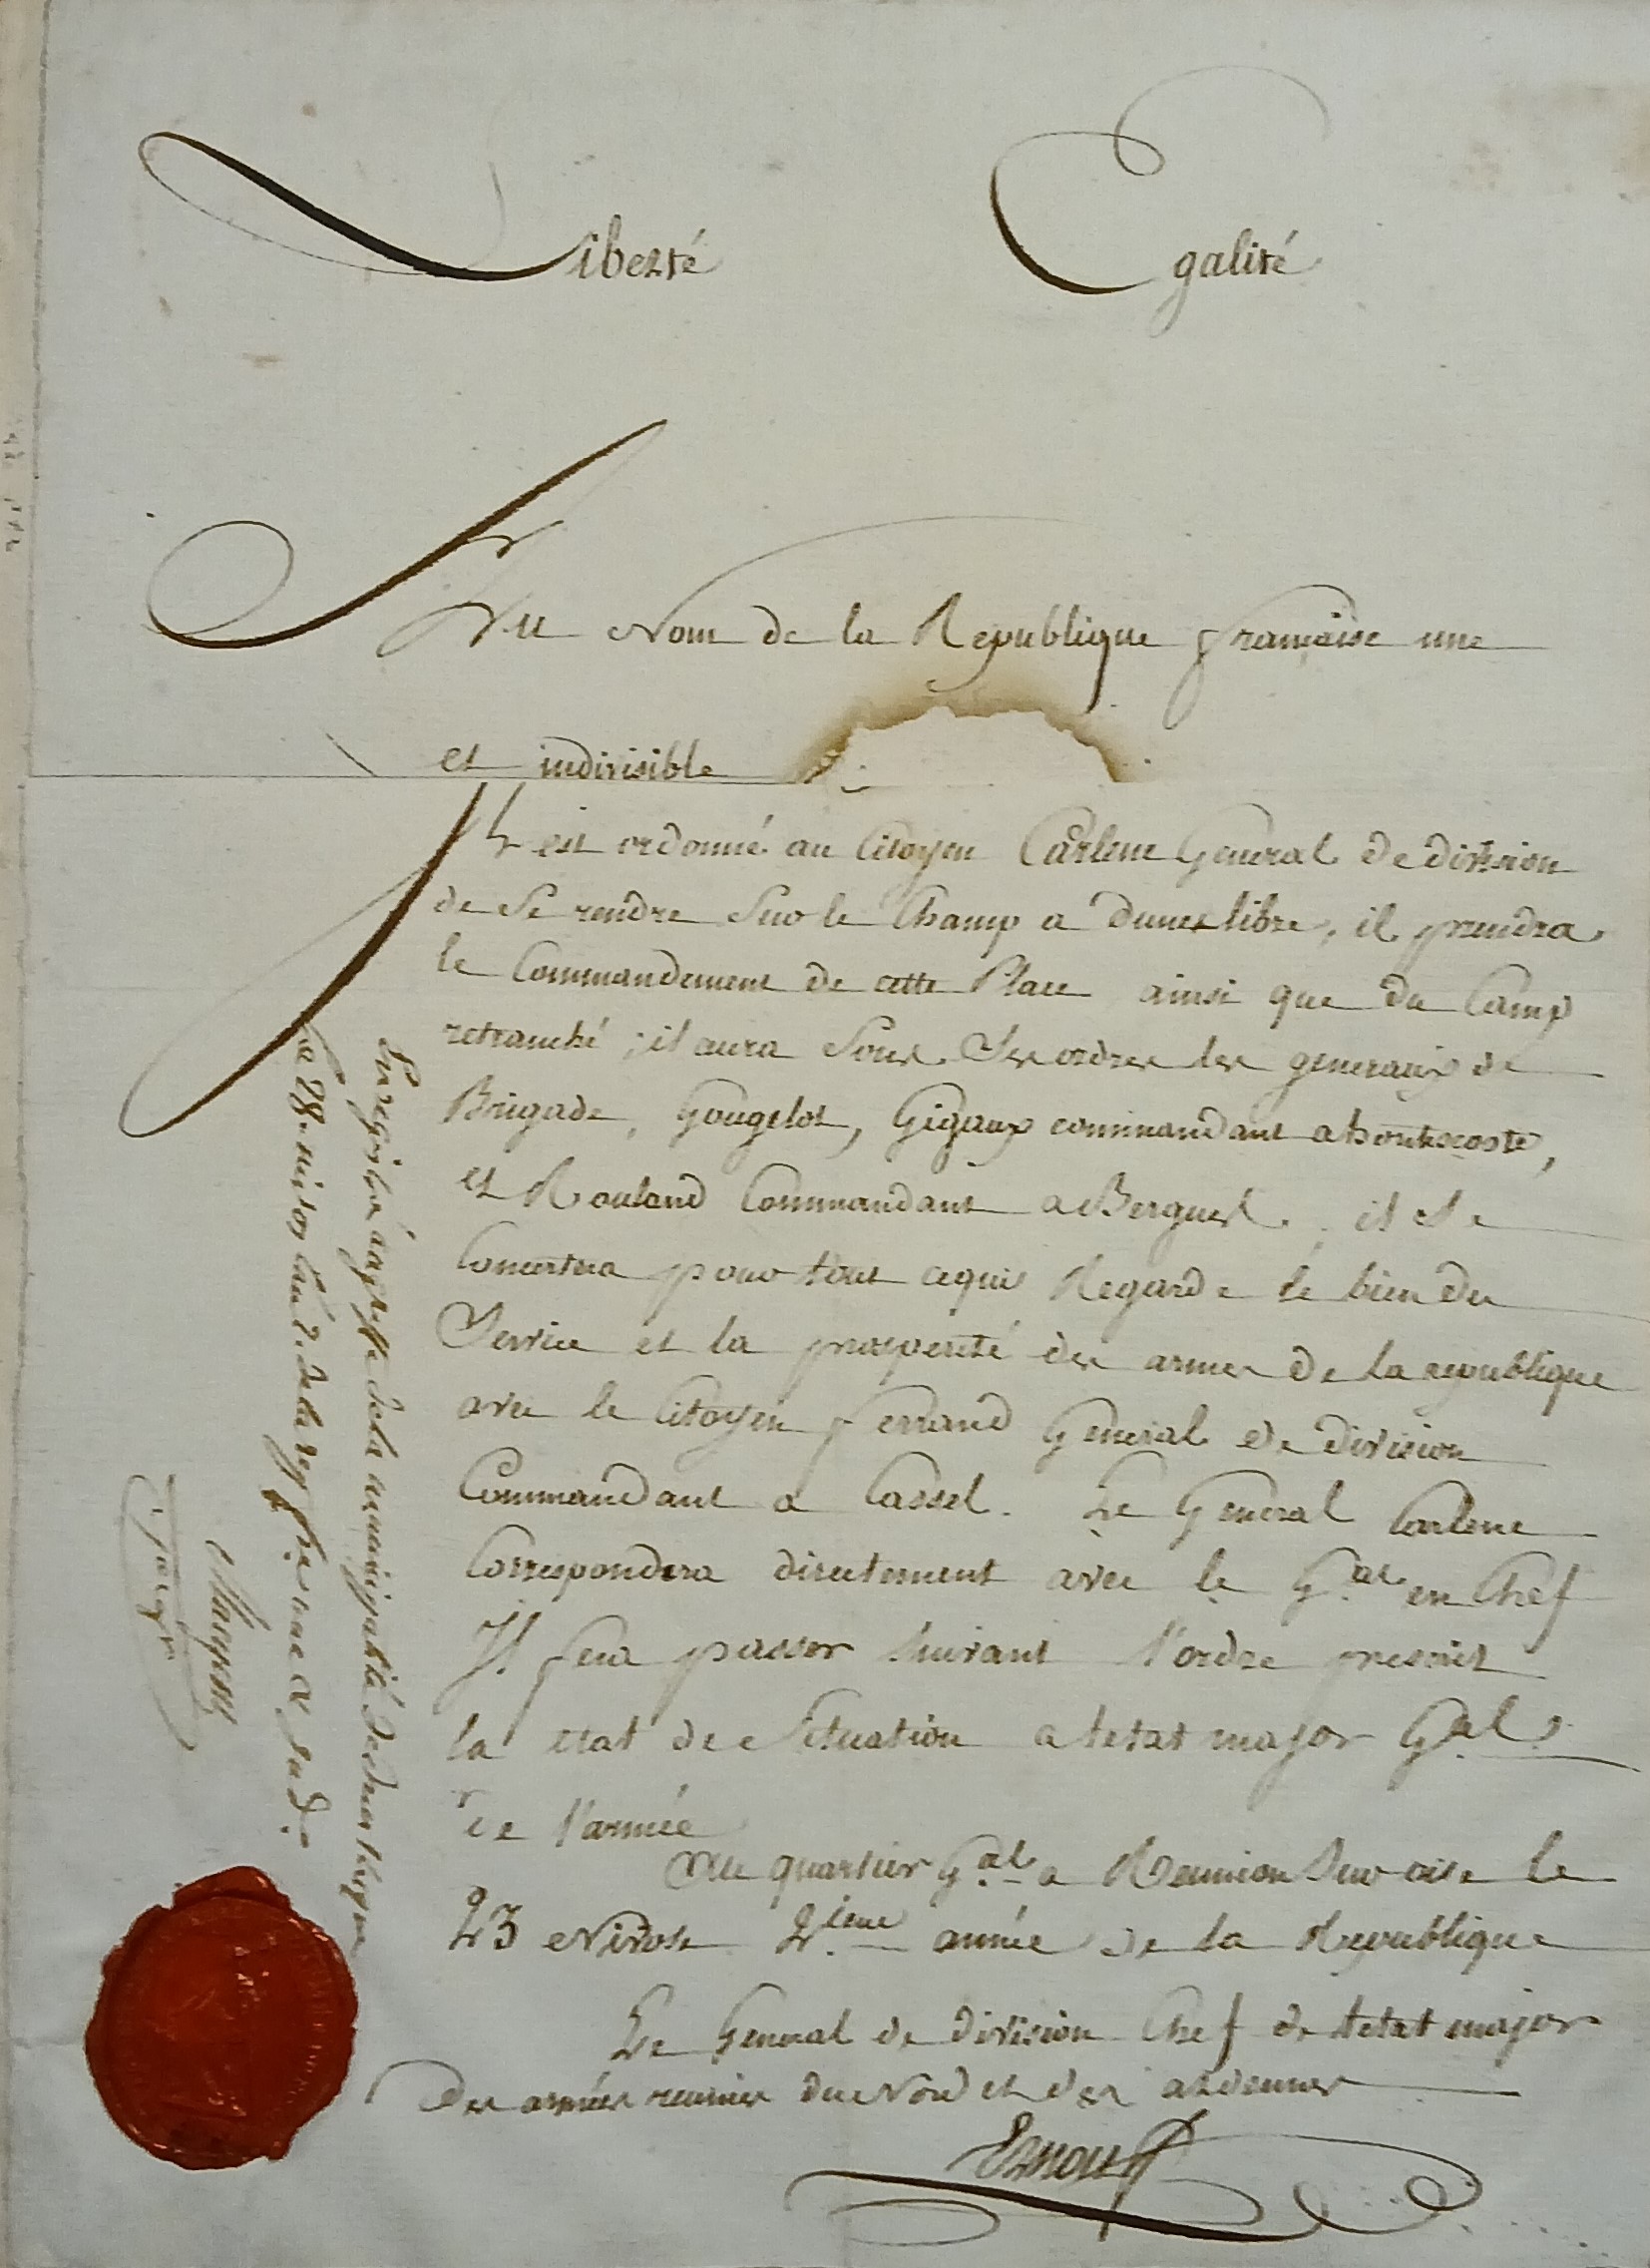 Liberté Egalité
Au Nom de la Republique française une
et indivisible
Il est ordonné au Citoyen Carlenc General de division
de se rendre sur le Champ a Dunes libre, il prendra
le Commandement de cette Place ainsi que du Camp
retranché ; il aura sous ses ordres les generaux de
Brigade, Gougelot, Gigaux commandant a hontscoste,
et Rouland Commandant a Bergues. il se
Concertera pour tout ce qui Regarde le bien du
Service et la prosperité des armes de la republique
avec le Citoyen ferrand General de division
Commandant a Cassel. Le General Carlenc
Correspondera directement avec le Gal en Chef
Il fera passer suivant l'ordre prescrit
la etat de Situation a letat major Gal
de l'armée
Au quartier Gal a Reunion sur oise le
23 Nivose 2ieme année de la Republique
Le General de division Chef de letat major
des armées reunies du Nord et des ardennes
Ernouf
Enregistré au greffe de la municipalité de dunes libre
le 28. nivose l'an 2. de la rep. fse une et ind.